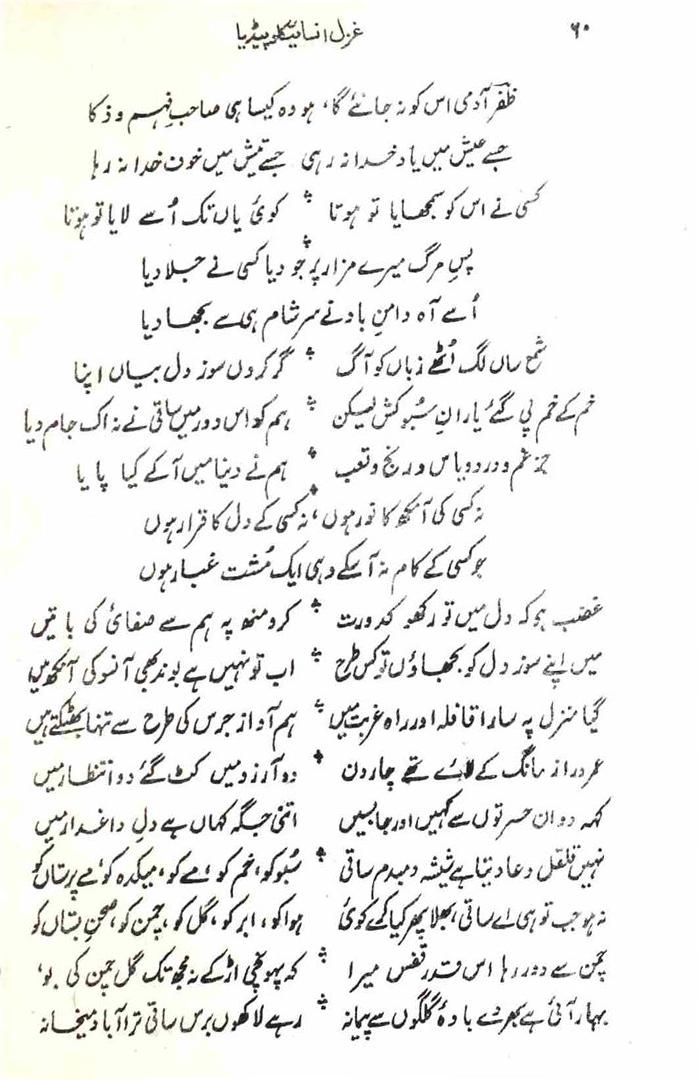 ۶۰ غزل انسائیکلوپیڈیا
ظفر آدمی اس کو نہ جانئے گا، ہو وہ کیسا ہی صاحبِ فہم و ذکا
جسے عیش میں یادِ خدا نہ رہی جسے طیش میں خوفِ خدا نہ رہا
کسی نے اس کو سمجھایا تو ہوتا کوئی یاں تک اُسے لایا تو ہوتا
پسِ مرگ میرے مزار پر جو دیا کسی نے جلا دیا
اُسے آہ دامنِ باد نے سرشام ہی سے بجھا دیا
شمع ساں لگ اُٹھے زباں کو آگ گر کروں سوزِ دل بیاں اپنا
خم کے خم پی گئے یارانِ سبُو کش لیکن ہم کو اس دور میں ساقی نے نہ اک جام دیا
جز غم و درد و یاس و رنج و تعب ہم نے دنیا میں آکے کیا پایا
نہ کسی کی آنکھ کا نور ہوں، نہ کسی کے دل کا قرار ہوں
جو کسی کے کام نہ آسکے وہی ایک مُشت غبار ہوں
غضب ہو کہ دل میں تو رکھو کدورت کرو منھ پہ ہم سے صفائی کی باتیں
میں اپنے سوزِ دل کو بجھاؤں تو کس طرح اب تو نہیں ہے بوند بھی آنسو کی آنکھ میں
گیا منزل پہ سارا قافلہ اور راہ غربت میں ہم آواز جرس کی طرح سے تنہا بھٹکتے ہیں
عمر دراز مانگ کے لائے تھے چار دن دو آرزو میں کٹ گئے دو انتظار میں
کہہ دو ان حسرتوں سے کہیں اور جا بسیں اتنی جگہ کہاں ہے دلِ داغدار میں
نہیں قلقل دعا دیتا ہے شیشہ دمبدم ساقی سُبو کو، خم کو، مے کو، میکدہ کو، مے پرستاں کو
نہ ہو جب تو ہی اے ساقی بھلا پھر کیا کرے کوئی ہوا کو، ابر کو، گل کو، چمن کو، صحنِ بستاں کو
چمن سے دور رہا اس قدر قفس میرا کہ پہونچی اڑ کے نہ مجھ تک گل چمن کی بو،
بہار آئی ہے بھر دے بادۂ گلگوں سے پیمانہ رہے لاکھوں برس ساقی ترا آباد میخانہ